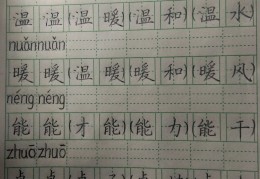 温 温 (温 暖) (温 和) (温 水)
nuǎn nuǎn
暖 暖 (温 暖) (暖 和) (暖 风)
néng néng
能 能 (才 能) (能 力) (能 干)
zhuō zhuō